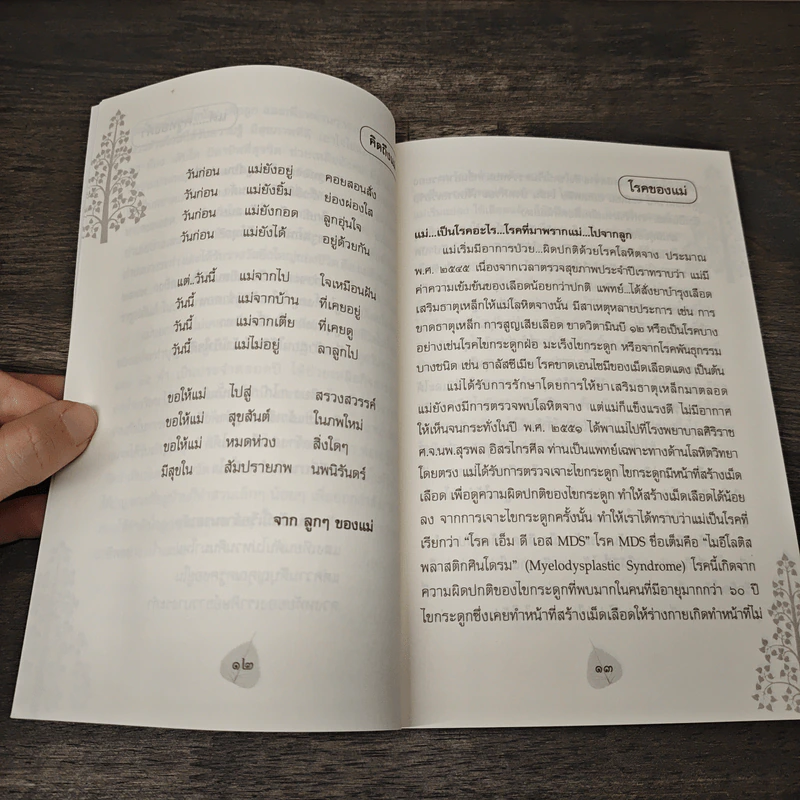 คิดถึง
วันก่อน แม่ยังอยู่ คอยสอนสั่ง
วันก่อน แม่ยังยิ้ม ย่องผ่องใส
วันก่อน แม่ยังกอด ลูกอุ่นใจ
วันก่อน แม่ยังได้ อยู่ด้วยกัน
แต่..วันนี้ แม่จากไป ใจเหมือนฝัน
วันนี้ แม่จากบ้าน ที่เคยอยู่
วันนี้ แม่จากเตี่ย ที่เคยดู
วันนี้ แม่ไม่อยู่ ลาลูกไป
ขอให้แม่ ไปสู่ สรวงสวรรค์
ขอให้แม่ สุขสันต์ ในภพใหม่
ขอให้แม่ หมดห่วง สิ่งใดๆ
มีสุขใน สัมปรายภพ นพนิรันดร์
จาก ลูกๆ ของแม่
๑๒
โรคของแม่
แม่...เป็นโรคอะไร...โรคที่มาพรากแม่...ไปจากลูก
แม่เริ่มมีอาการป่วย...ผิดปกติด้วยโรคโลหิตจาง ประมาณ
พ.ศ. ๒๕๔๕ เนื่องจากเวลาตรวจสุขภาพประจำปีเราทราบว่า แม่มี
ค่าความเข้มข้นของเลือดน้อยกว่าปกติ แพทย์...ได้สั่งยาบำรุงเลือด
เสริมธาตุเหล็กให้แม่โลหิตจางนั้น มีสาเหตุหลายประการ เช่น การ
ขาดธาตุเหล็ก การสูญเสียเลือด ขาดวิตามินบี ๑๒ หรือเป็นโรคบาง
อย่างเช่นโรคไขกระดูกฝ่อ มะเร็งไขกระดูก หรือจากโรคพันธุกรรม
บางชนิด เช่น ธาลัสซีเมีย โรคขาดเอนไซม์ของเม็ดเลือดแดง เป็นต้น
แม่ได้รับการรักษาโดยการให้ยาเสริมธาตุเหล็กมาตลอด
แม่ยังคงมีการตรวจพบโลหิตจาง แต่แม่ก็แข็งแรงดี ไม่มีอาการ
ให้เห็นจนกระทั่งในปี พ.ศ. ๒๕๕๑ ได้พาแม่ไปที่โรงพยาบาลศิริราช
ศ.จ.นพ.สุรพล อิสรไกรศีล ท่านเป็นแพทย์เฉพาะทางด้านโลหิตวิทยา
โดยตรง แม่ได้รับการตรวจเจาะไขกระดูก ไขกระดูกมีหน้าที่สร้างเม็ด
เลือด เพื่อดูความผิดปกติของไขกระดูก ทำให้สร้างเม็ดเลือดได้น้อย
ลง จากการเจาะไขกระดูกครั้งนั้น ทำให้เราได้ทราบว่าแม่เป็นโรคที่
เรียกว่า "โรค เอ็ม ดี เอส MDS" โรค MDS ชื่อเต็มคือ "ไมอีโลดิส
พลาสติกศินโดรม" (Myelodysplastic Syndrome) โรคนี้เกิดจาก
ความผิดปกติของไขกระดูกที่พบมากในคนที่มีอายุมากกว่า ๖๐ ปี
ไขกระดูกซึ่งเคยทำหน้าที่สร้างเม็ดเลือดให้ร่างกายเกิดทำหน้าที่ไม่
๑๓